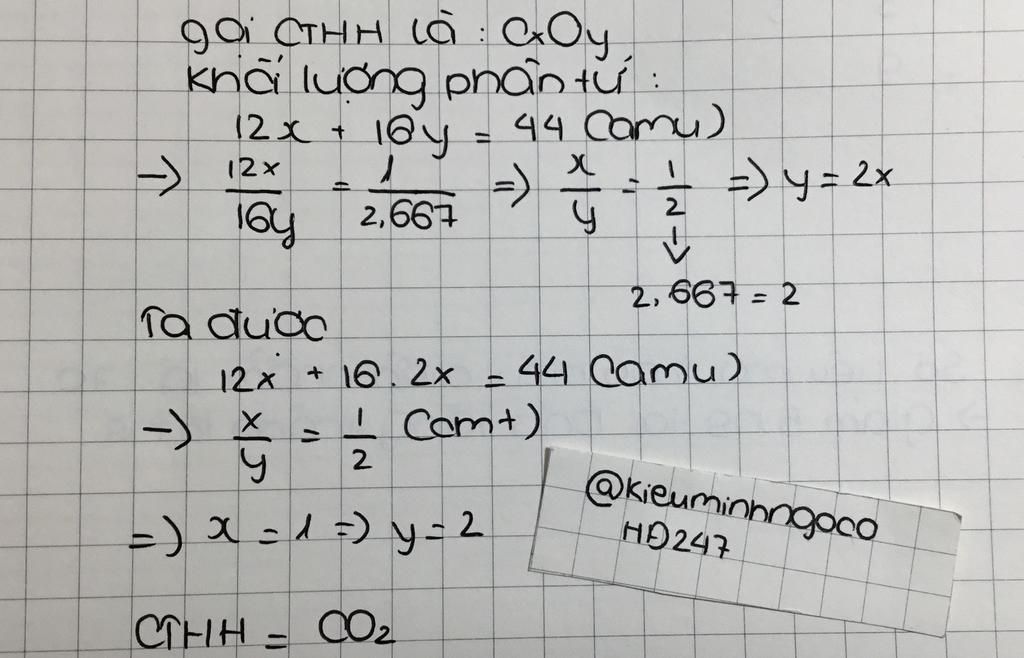 gọi CTHH là : CxOy
Khối lượng phân tử :
12x + 16y = 44 (amu)
→ 12x/16y = 1/2,667 => x/y = 1/2 => y = 2x
↓
2,667 = 2
Ta được
12x + 16 . 2x = 44 (amu)
→ x/y = 1/2 (cmt)
=> x = 1 => y = 2
CTHH = CO₂
@kieuminhngoco
HĐ247